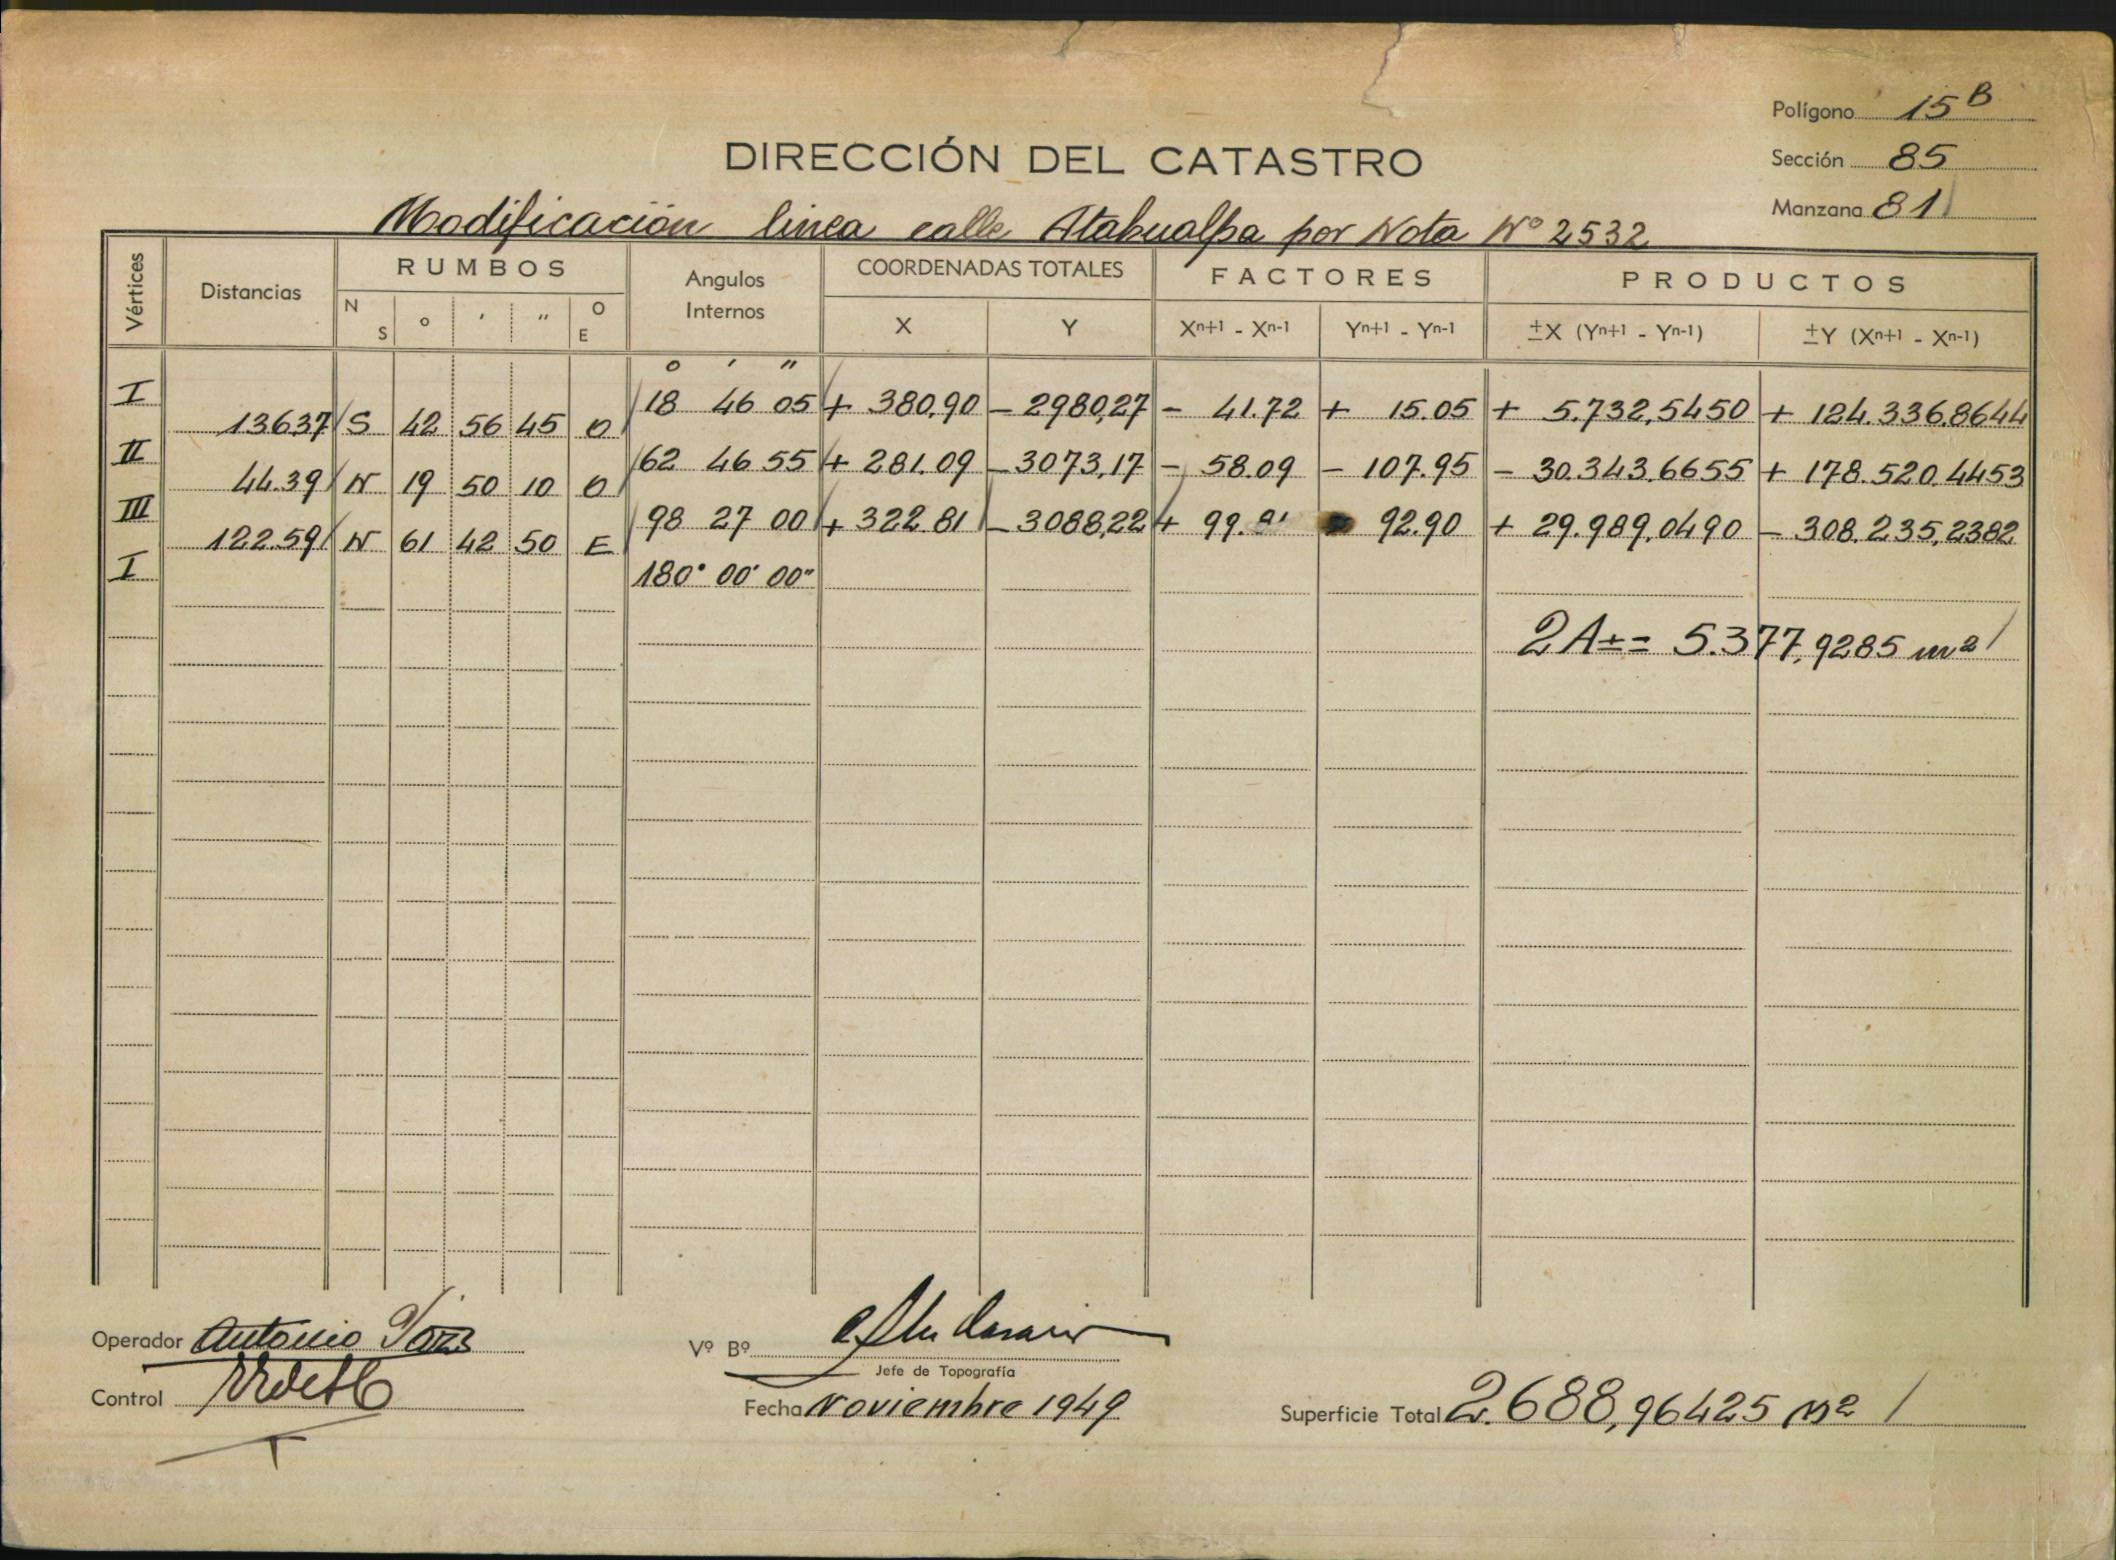 Polígono 15 B
Sección 85
Manzana 81
DIRECCIÓN DEL CATASTRO
Modificación linea calle Atahualpa por Nota Nº 2532
Vértices Distancias RUMBOS Angulos Internos COORDENADAS TOTALES FACTORES PRODUCTOS
N S ° ′ ″ O E X Y Xn+1 - Xn-1 Yn+1 - Yn-1 ±X (Yn+1 - Yn-1) ±Y (Xn+1 - Xn-1)
° ′ ″
I 18 46 05 + 380,90 - 2980,27 - 41.72 + 15.05 + 5.732,5450 + 124.336.8644
136.37 S 42 56 45 O
II 62 46 55 + 281.09 - 3073,17 - 58.09 - 107.95 - 30.343.6655 + 178.520.4453
44.39 N 19 50 10 O
III 98 27 00 + 322.81 - 3088,22 + 99. 92.90 + 29.989,0490 - 308.235,2382
122.59 N 61 42 50 E
I 180° 00' 00"
2A± = 5.377,9285 m2
Operador Antonio
Control
Vº Bº
Jefe de Topografía
Fecha Noviembre 1949
Superficie Total 2.688,96425 m2